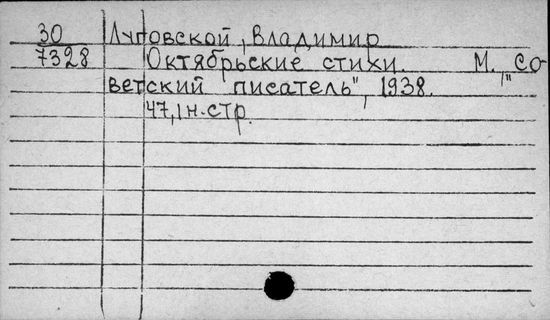 30 Луговской, Владимир
7328 Октябрьские стихи. М., "Со-
ветский писатель", 1938.
47, 1 н. стр.